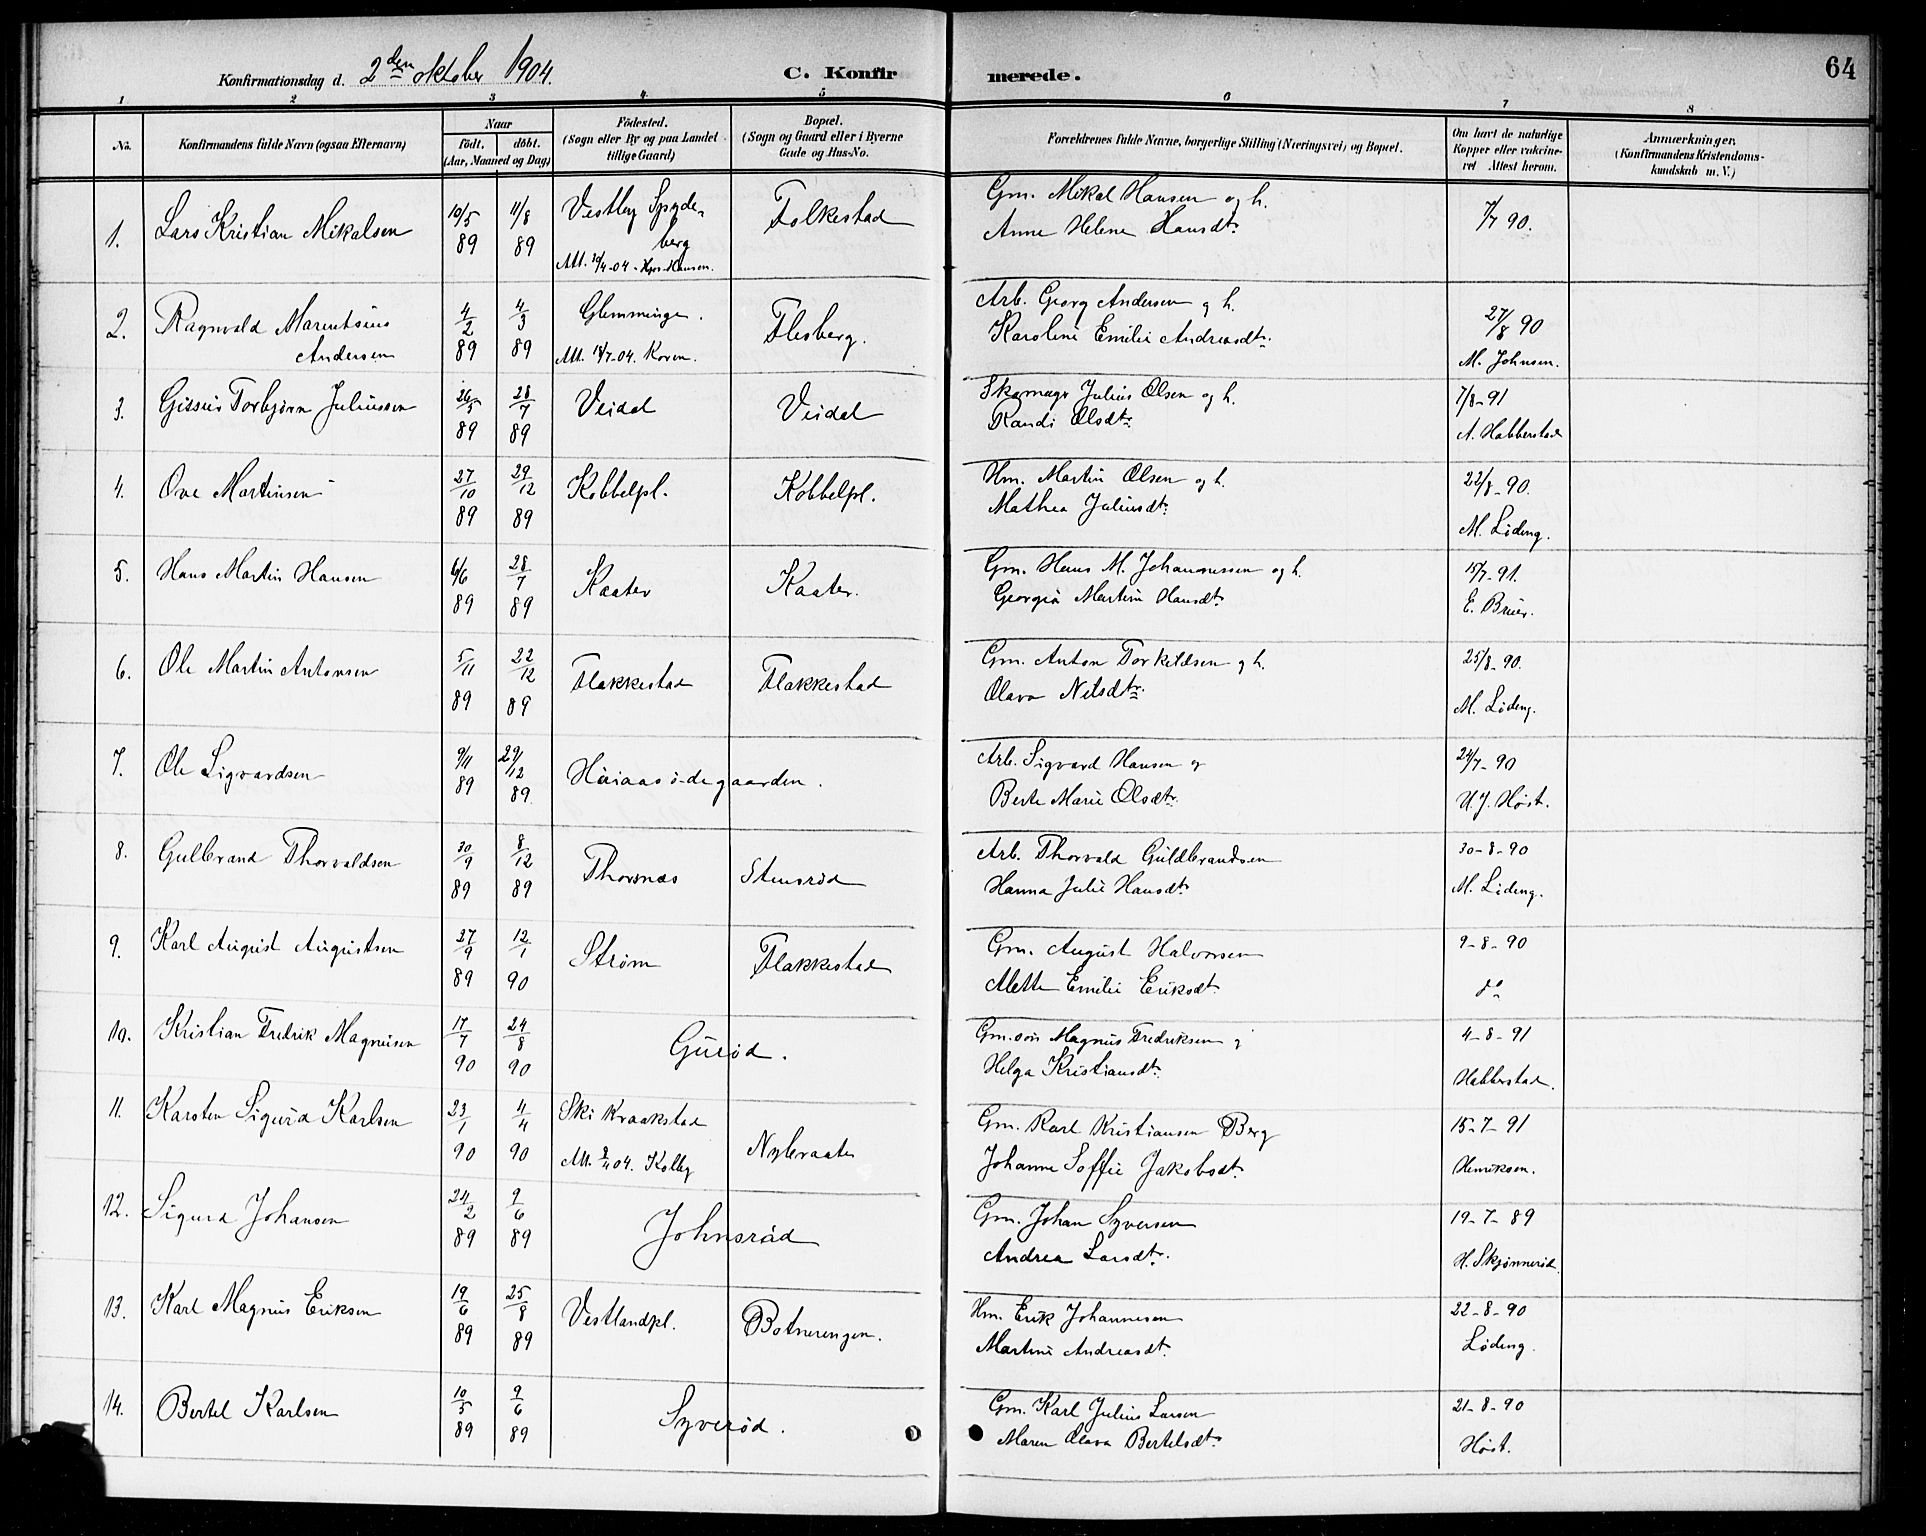 Konfirmationsdag d. 2den oktober 1904.
C. Konfirmerede.
64
1 2 3 4 5 6 7 8
No.
Konfirmandens fulde Navn (ogsaa Efternavn)
Naar
födt. döbt.
(Aar, Maaned og Dag)
Födested.
(Sogn eller By og paa Landet
tillige Gaard)
Bopæl.
(Sogn og Gaard eller i Byerne
Gade og Hus-No.
Forældrenes fulde Navne, borgerlige Stilling (Næringsvei) og Bopæl.
Om havt de naturlige
Kopper eller vakcine-
ret Attest herom.
Anmærkninger.
(Konfirmandens Kristendoms-
kundskab m. V.)
1. Lars Kristian Mikalsen 10/5 89 11/8 89 Vestby Spyde-
berg
Att. 19/4-04. Hansen.
Folkestad
Gm. Mikal Hansen og h.
Anne Helene Hansdtr.
7/7 90.
2. Ragnvald Marentsius
Andersen
4/2 89 4/3 89 Glemminge.
Att. 18/7-04. Koren.
Flesberg.
Arb. Georg Andersen og h.
Karoline Emilie Andreasdtr.
27/8 90
M. Johnsen.
3. Gissus Torbjørn Juliussen 26/5 89 28/7 89 Veidal Veidal
Skomager Julius Olsen og h.
Randi Olsdtr.
7/8-91
A. Habberstad
4. Ove Martinsen 27/10 89 29/12 89 Kobbelpl. Kobbelpl.
Hm. Martin Olsen og h.
Mathea Juliusdtr.
22/8-90.
M. Löding.
5. Hans Martin Hansen 6/6 89 28/7 89 Kaater Kaater.
Gm. Hans M. Johannessen og h.
Georgia Martini Hansdtr.
15/7-91.
E. Bruer.
6. Ole Martin Antonsen 5/11 89 22/12 89 Flakkestad Flakkestad
Gm. Anton Torkeldsen og h.
Olava Nilsdtr.
25/8-90.
M. Löding.
7. Ole Sigvardsen 9/11 89 29/12 89 Håiaasødegaarden.
Arb. Sigvard Hansen og
Berte Marie Olsdtr.
24/7-90
U. J. Höst.
8. Gulbrand Thorvaldsen 30/9 89 8/12 89 Thorsnæs Stensröd
Arb. Thorvald Guldbrandsen
Hanna Julie Hansdtr.
30-8-90
M. Löding.
9. Karl August Augustsen 27/9 89 12/1 90 Ström Flakkestad
Gm. August Halvorsen
Alette Emilie Eriksdtr.
9-8-90
do
10. Kristian Fredrik Magnusen 17/7 90 24/8 90 Guröd.
Gm.søn Magnus Fredriksen og
Helga Kristiansdtr.
4-8-91
Habberstad.
11. Karsten Sigurd Karlsen 23/1 90 4/4 90 Ski Kraakstad
Att. 8/4 04. Kolby
Nybraate
Gm. Karl Kristiansen Berg
Johanne Soffie Jakobsdtr.
15-7-91
Henriksen.
12. Sigurd Johansen 24/2 89 9/6 89 Johnsröd
Gm. Johan Syversen
Andrea Larsdtr.
19-7-89
H. Skjønneröd.
13. Karl Magnus Eriksen 19/6 89 25/8 89 Vestlandpl. Botnerengen.
Hm. Erik Johannesen
Martine Andreasdtr.
22-8-90
Löding.
14. Bertel Karlsen 10/5 89 9/6 89 Syveröd.
Gm. Karl Julius Larsen
Maren Olava Bertelsdtr.
21-8-90
Höst.